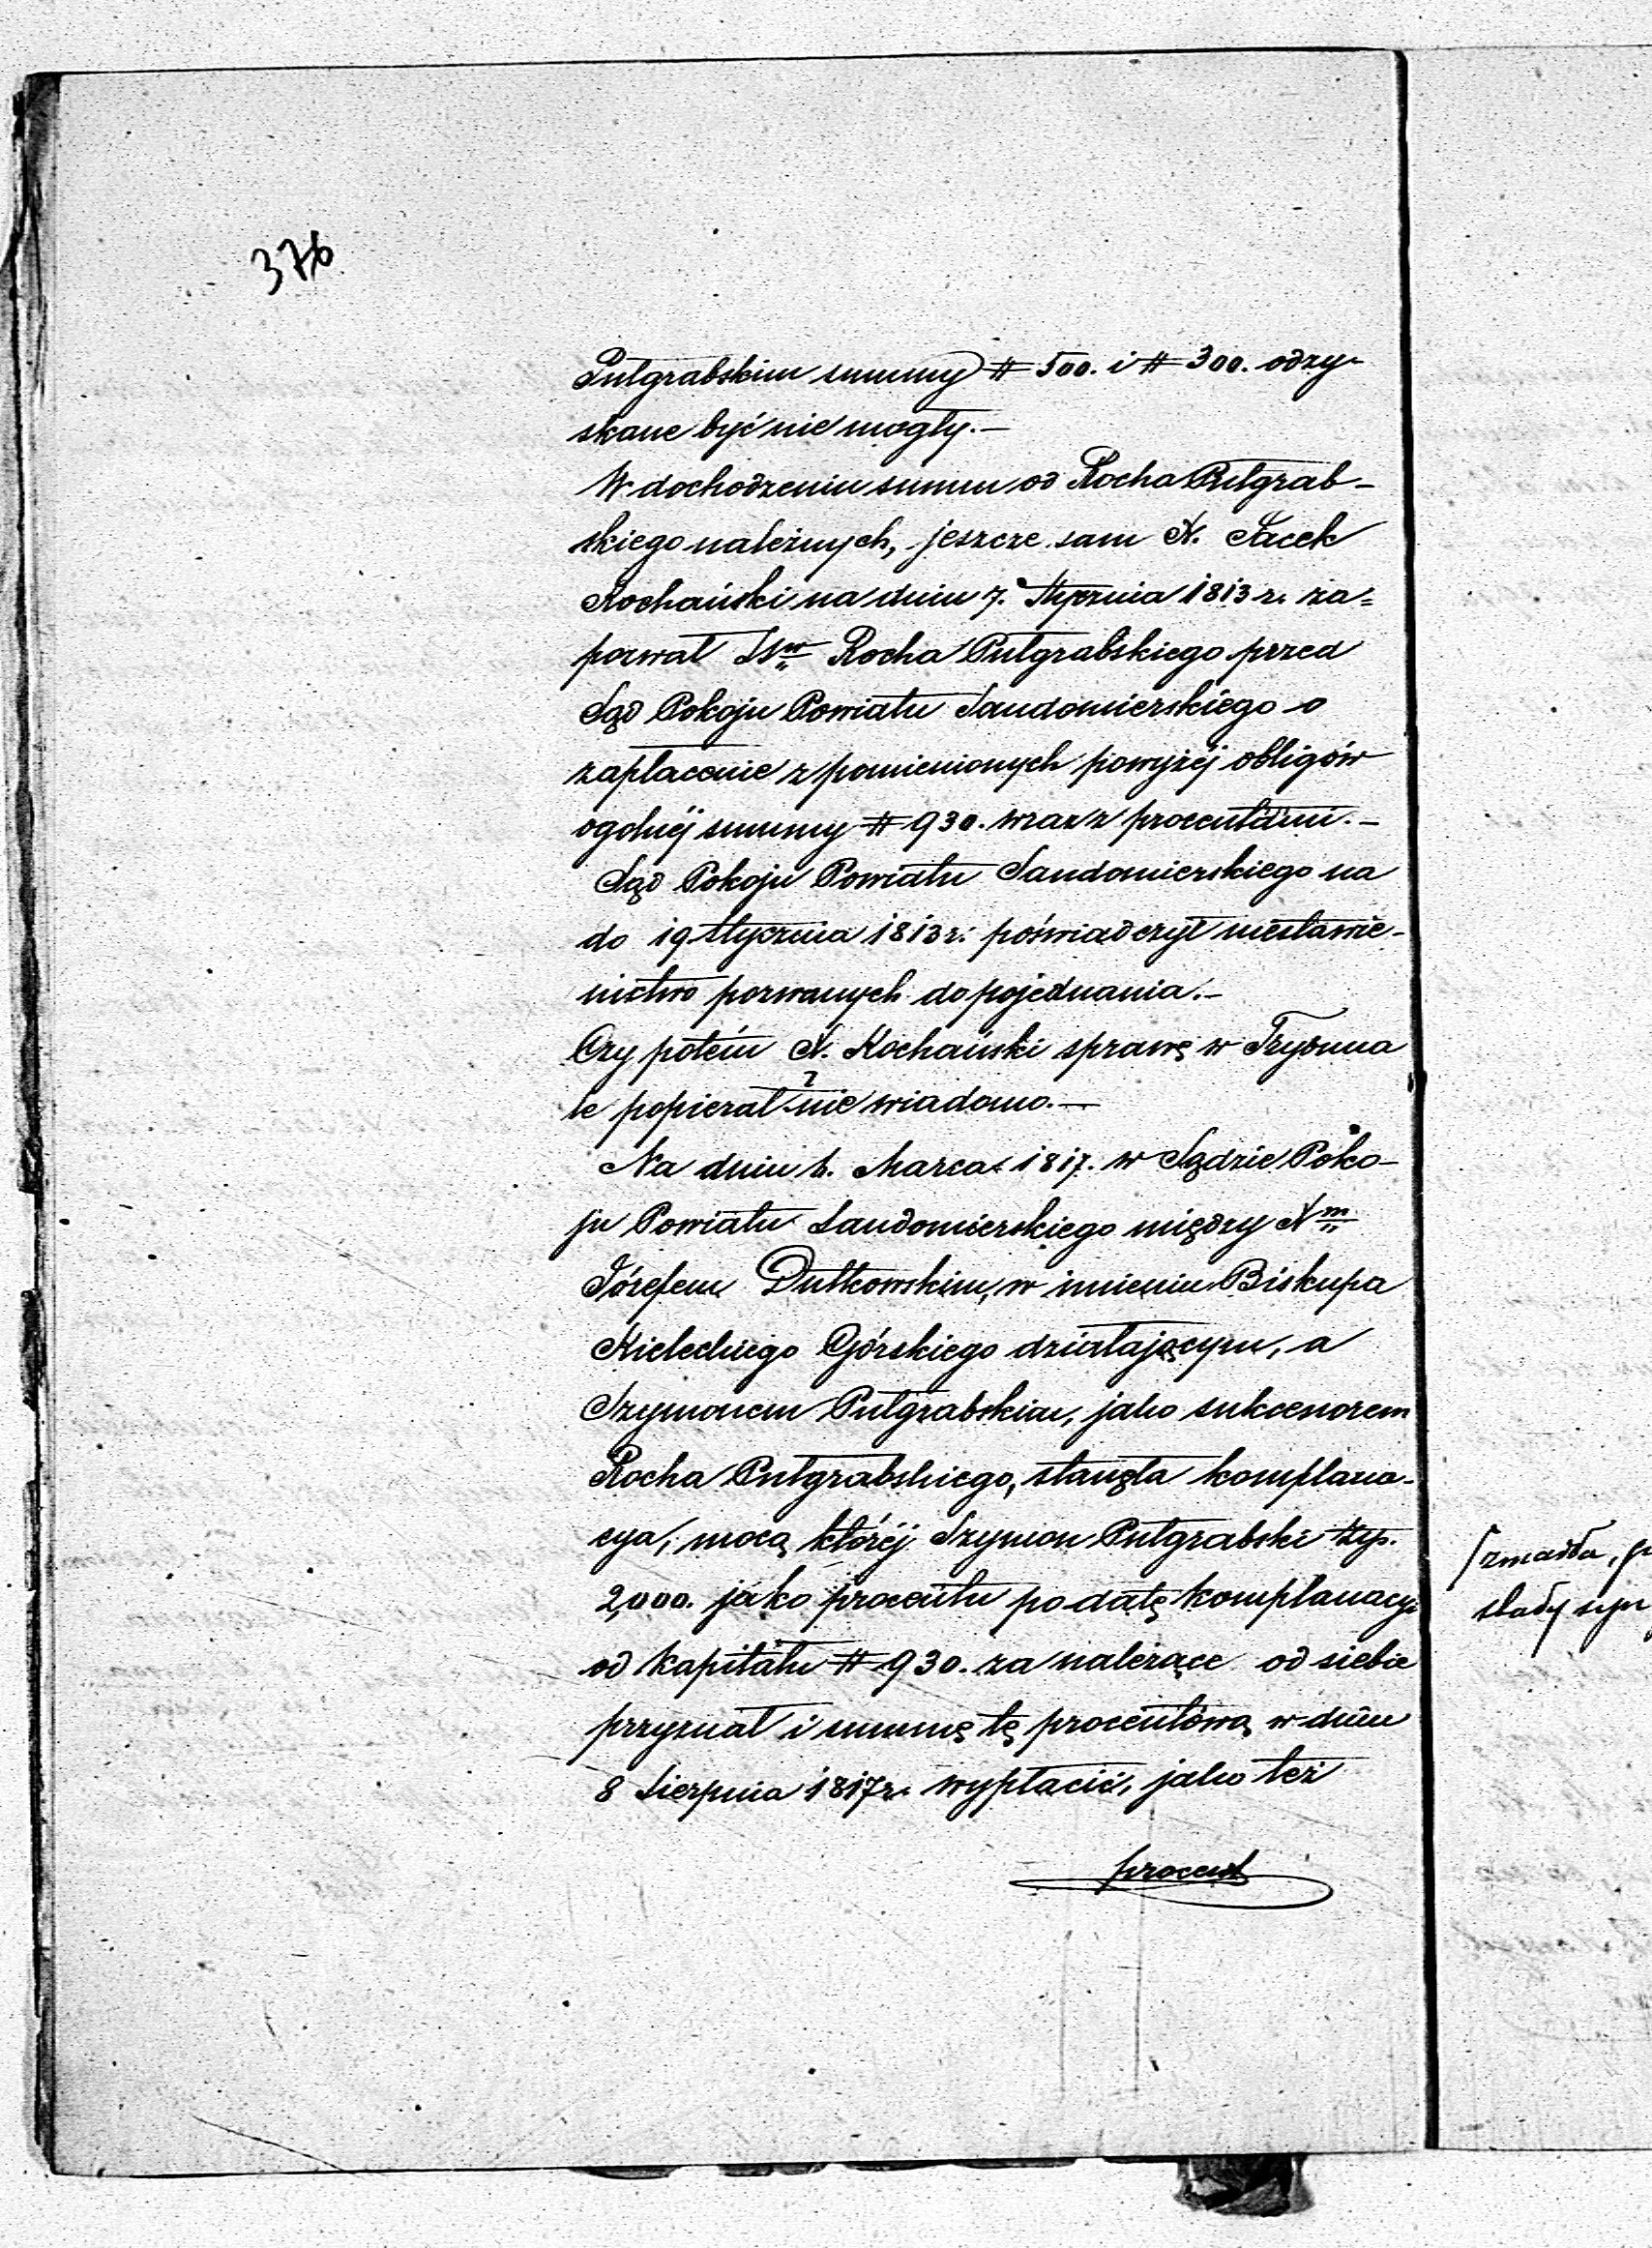 376
Pułgrabskim summy # 500. i # 300. odzy-
skane być nie mogły.—
W dochodzeniu summ od Rocha Pułgrab-
skiego należnych, jeszcze sam X. Jacek
Kochański na dniu 7. Stycznia 1813 r. za=
pozwał Rocha Pułgrabskiego przed
Sąd Pokoju Powiatu Sandomierskiego o
zapłacenie z pomienionych powyżéj obligów
ogolnéj summy # 930. wraz z procentami.—
Sąd Pokoju Powiatu Sandomierskiego na
do 19 stycznia 1813 r. poświadczył niestawie-
nictwo pozwanych do pojednania.—
Czy potém X. Kochański sprawę w Trybuna
le popierał? nie wiadomo.—
Na dniu Marca 1817. w Sądzie Poko-
ju Powiatu Sandomierskiego między Xm
Józefem Dutkowskim, w imieniu Biskupa
Kieleckiego Górskiego działającym, a
Szymonem Pułgrabskim, jako sukcesorem
Rocha Pułgrabskiego, stanęła komplana-
cya, mocą któréj Szymon Pułgrabski złp.
2,000. jako procentu po datę komplanacyi
od kapitału # 930. za należące od siebie
przyznał i summę tę procentową w dniu
8 Sierpnia 1817 r. wypłacić, jako też
procent
zmarła,